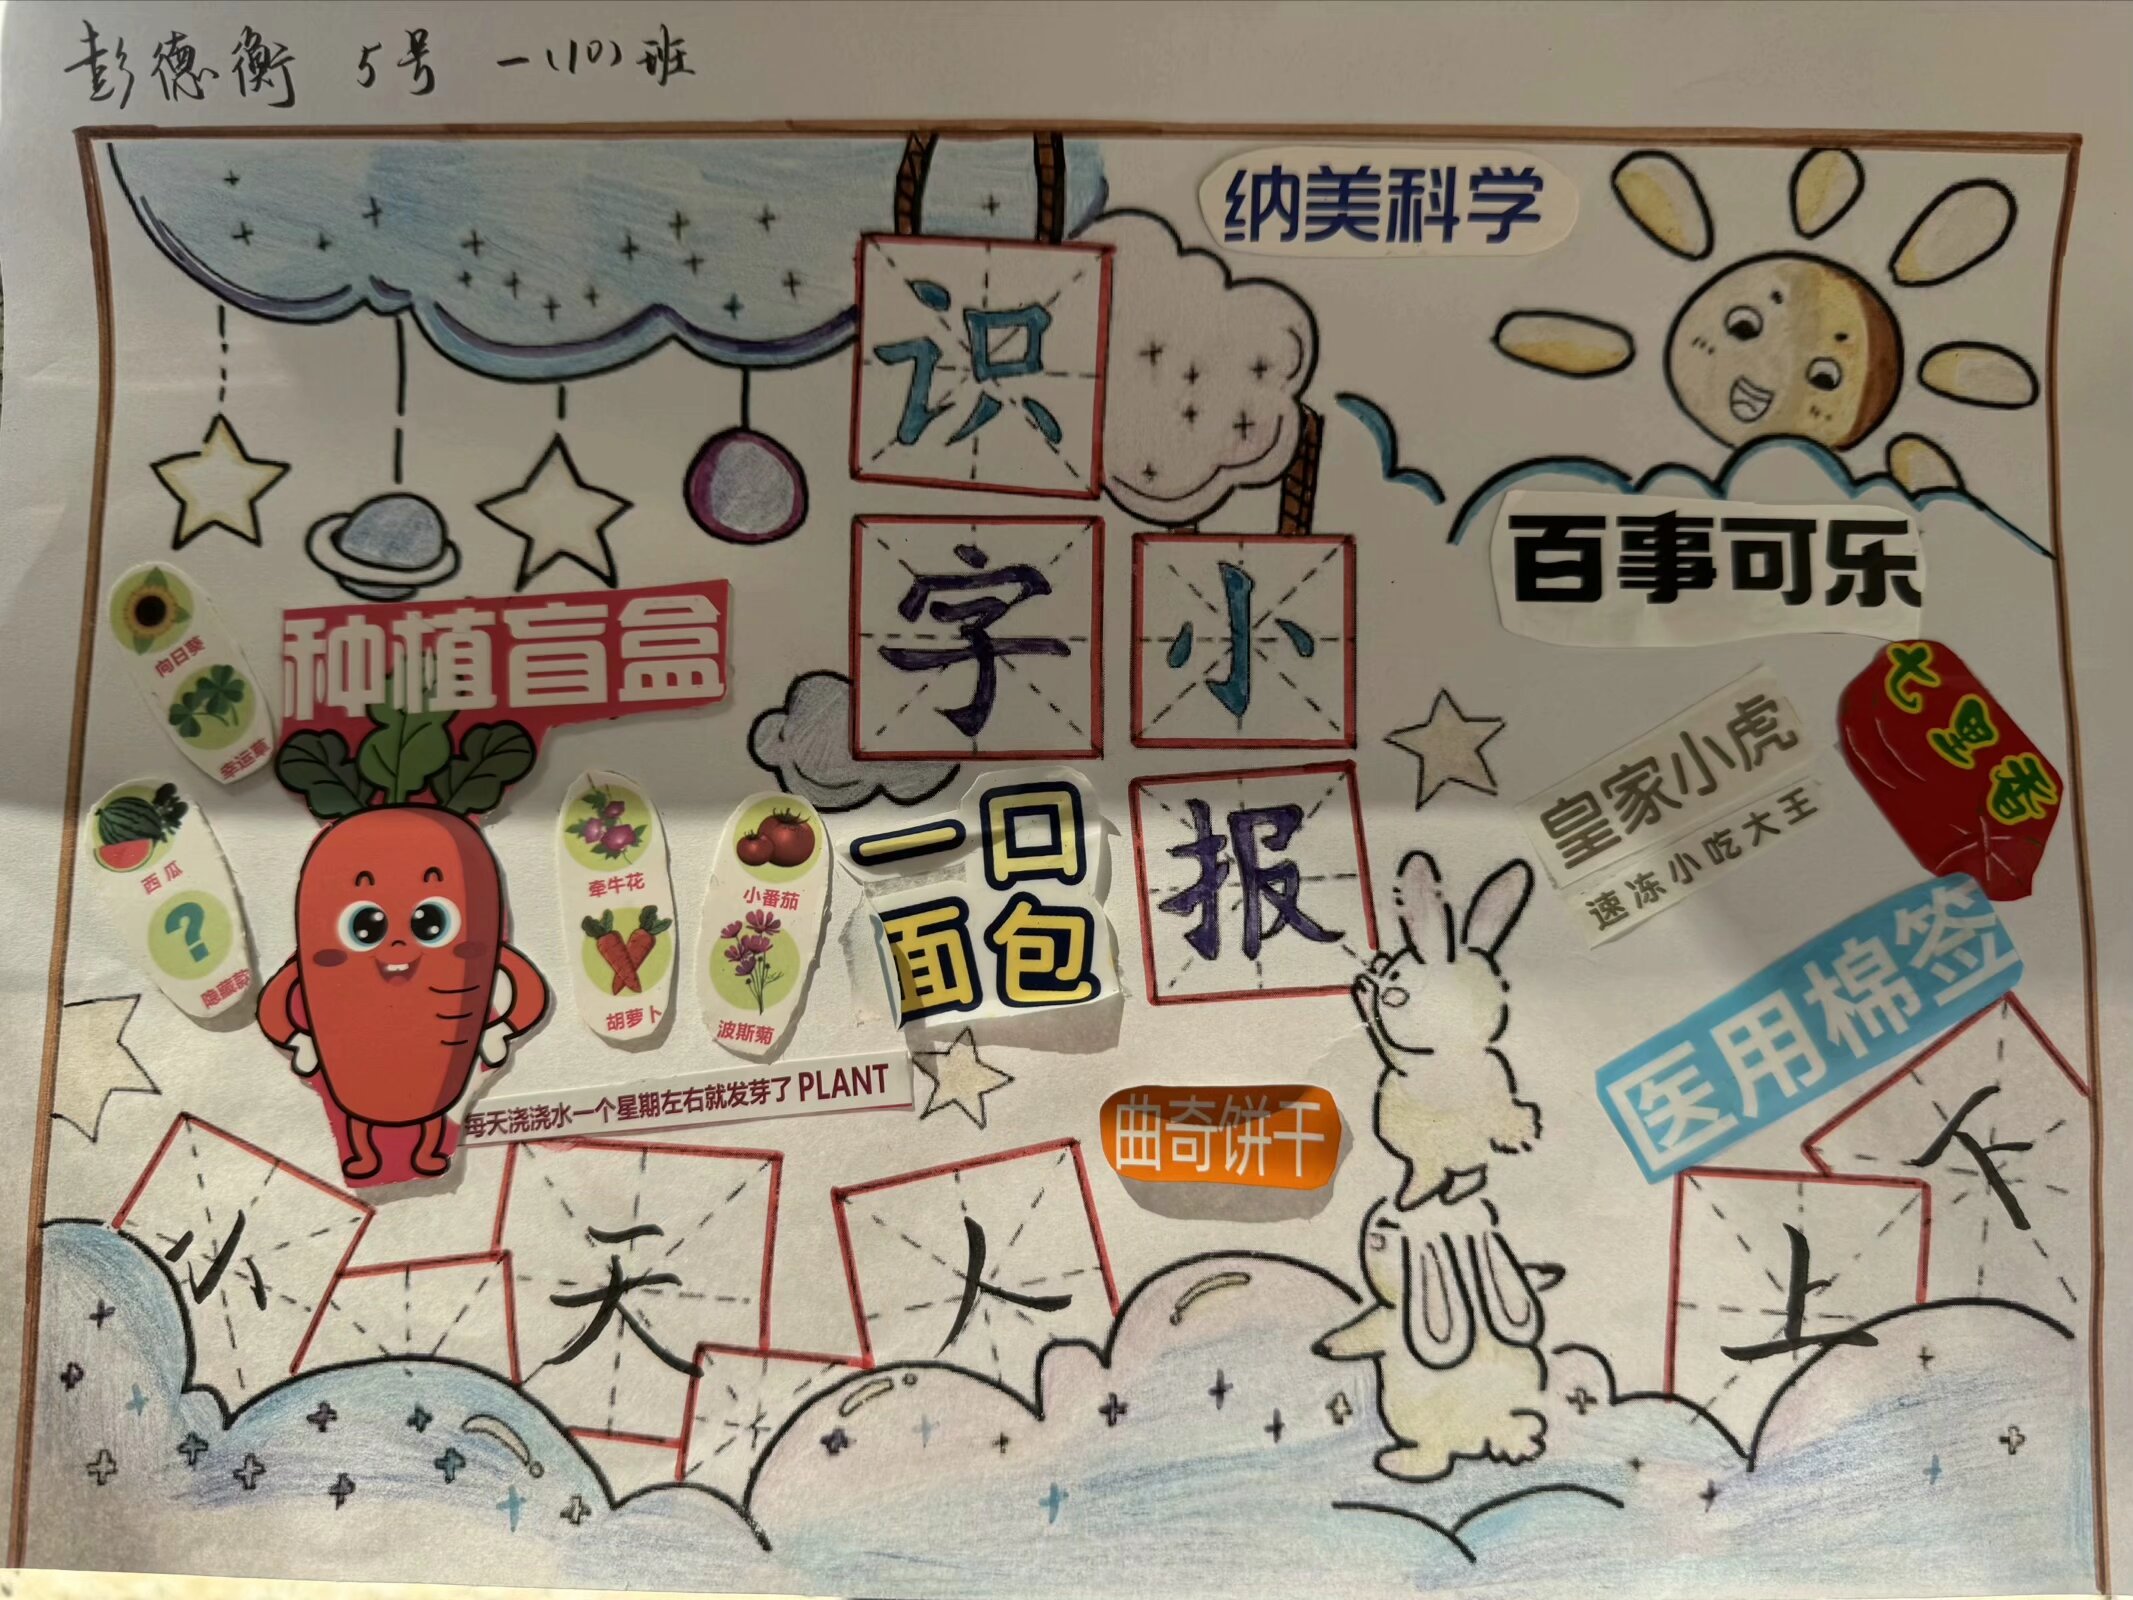 彭德衡 5号 一(10)班
纳美科学
识
字
小
报
百事可乐
七里香
皇家小虎
速冻小吃大王
医用棉签
种植盲盒
向日葵
幸运草
西瓜
?
隐藏款
牵牛花
胡萝卜
小番茄
波斯菊
一口
面包
每天浇浇水一个星期左右就发芽了 PLANT
曲奇饼干
天
人
上
下